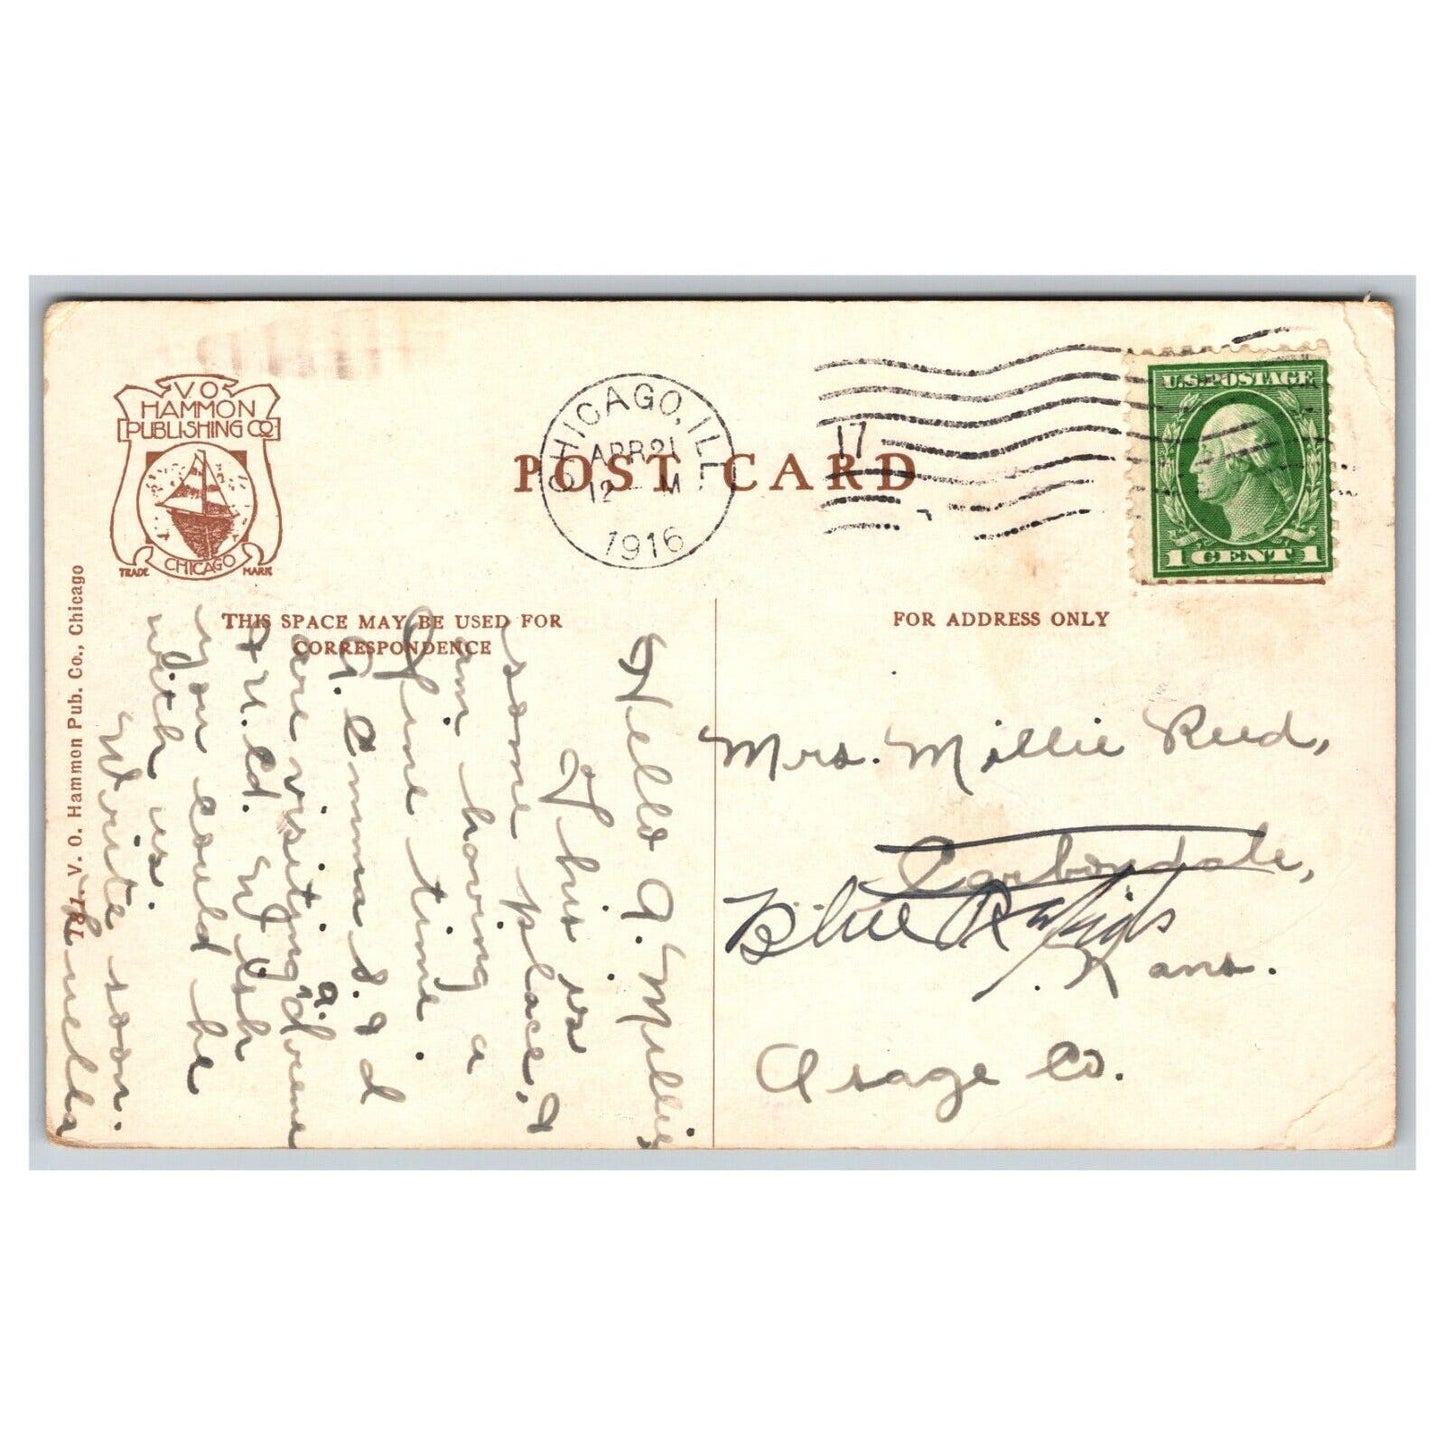 V.O.
HAMMON
PUBLISHING CO.
CHICAGO
TRADE MARK
CHICAGO, ILL.
APR 21
12 M
1916
17
POST CARD
U.S. POSTAGE
1 CENT 1
THIS SPACE MAY BE USED FOR
CORRESPONDENCE
FOR ADDRESS ONLY
V. O. Hammon Pub. Co., Chicago
Hello A. Millie
This is
some place, &
am having a
fine time.
A. Emma S. & d
are visiting A.
& U. Ed. Wish
you could be
with us.
Write soon.
Mrs. Millie Reed,
Carbondale,
Blue Rapids
Kans.
Osage Co.